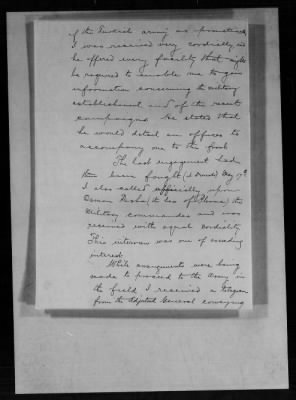 of the Turkish army as promised
I was received very cordially and
he offered every facility that might
be required to enable me to gain
information concerning the military
establishment and of the recent
campaigns. He stated that
he would detail an officer to
accompany me to the front
The last engagement had
then been fought (at Domoko) May 17th
I also called officially upon
Osman Pasha (the hero of Plevna) the
Military commander and was
received with equal cordiality.
This interview was one of exceeding
interest.
While arrangements were being
made to proceed to the Army in
the field I received a telegram
from the Adjutant General conveying